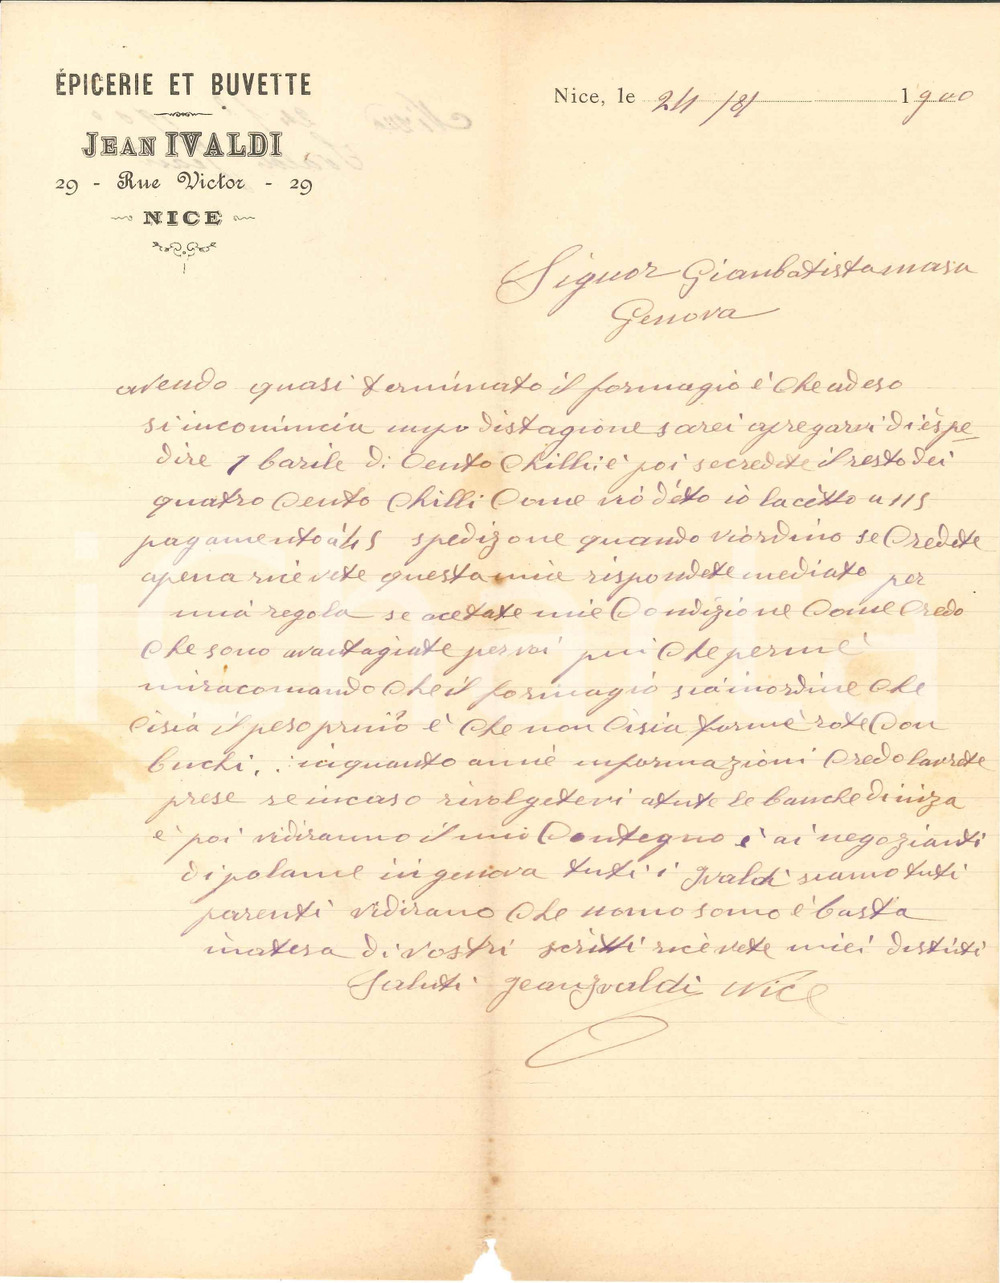 ÉPICERIE ET BUVETTE
JEAN IVALDI
29 - Rue Victor - 29
NICE
Nice, le 24/8/ 1900
Signor Gianbatista masa
Genova
avendo quasi terminato il formagio è che adeso
si incomincia unpo distagione sarei apregarvi di ispe
dire 1 barile di Cento Chilli è poi se credete il resto dei
quatro Cento Chilli Come viò déto iò lacétto a 115
pagamento à 45 spedizone quando viordino se Credete
apena ricevete questa mia rispondete mediato per
mia regola se acetate mie Condizione Come Credo
Che sono avantagiate per voi piu che per mè
miracomando che il formagio sia inordine che
Cisia il peso è che non Cisia forme rote Con
buchi .. inquanto amè informazioni Credo lavrete
prese se incaso rivolgetevi atute le banche di niza
è poi vidiranno il mio Contegno è ai negozianti
di polame in genova tuti i Ivaldi siamo tuti
parenti vidirano che uomo sono è basta
inatesa di vostri scritti ricèvete miei distinti
Saluti Jean Ivaldi Nice